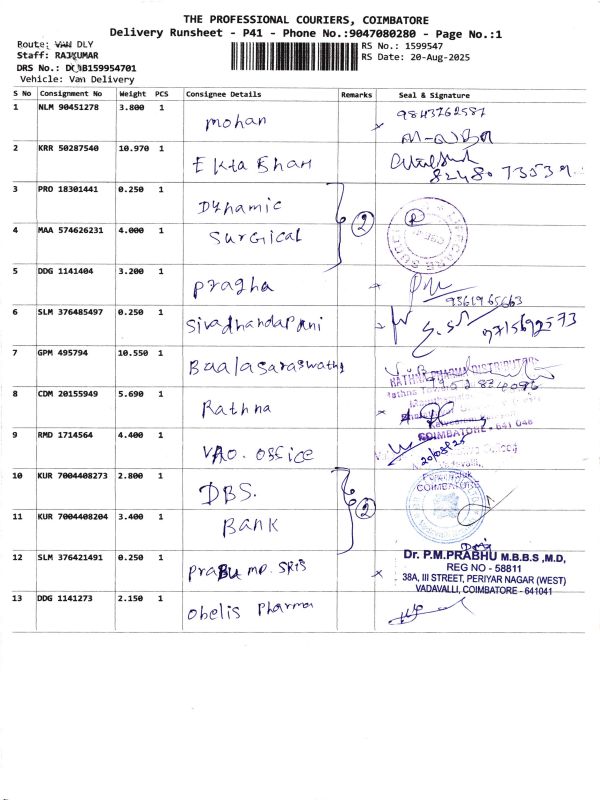 THE PROFESSIONAL COURIERS, COIMBATORE
Delivery Runsheet - P41 - Phone No.:9047080280 - Page No.:1
Route: VAN DLY
RS No.: 1599547
Staff: RAJKUMAR
RS Date: 20-Aug-2025
DRS No.: B159954701
Vehicle: Van Delivery
S No Consignment No Weight PCS Consignee Details Remarks Seal & Signature
1 NLM 90451278 3.800 1 mohan 9843762587
2 KRR 50287540 10.970 1 Ekta Bhan 82480 73539
3 PRO 18301441 0.250 1 Dynamic
4 MAA 574626231 4.000 1 Surgical 2
5 DDG 1141404 3.200 1 Pragha 9361965663
6 SLM 376485497 0.250 1 Sivadhandapani 9715692573
7 GPM 495794 10.550 1 Baalasaraswathy
RATHNA PHARMA DISTRIBUTORS
8 CDM 20155949 5.690 1 Rathna
COIMBATORE - 641 046
9 RMD 1714564 4.400 1 VAO. office 20/08/25
COIMBATORE
10 KUR 7004408273 2.800 1 DBS.
11 KUR 7004408204 3.400 1 Bank 2
12 SLM 376421491 0.250 1 Prabu MD.
Dr. P.M.PRABHU M.B.B.S ,M.D,
REG NO - 58811
38A, III STREET, PERIYAR NAGAR (WEST)
VADAVALLI, COIMBATORE - 641041
13 DDG 1141273 2.150 1 Obelis Pharma